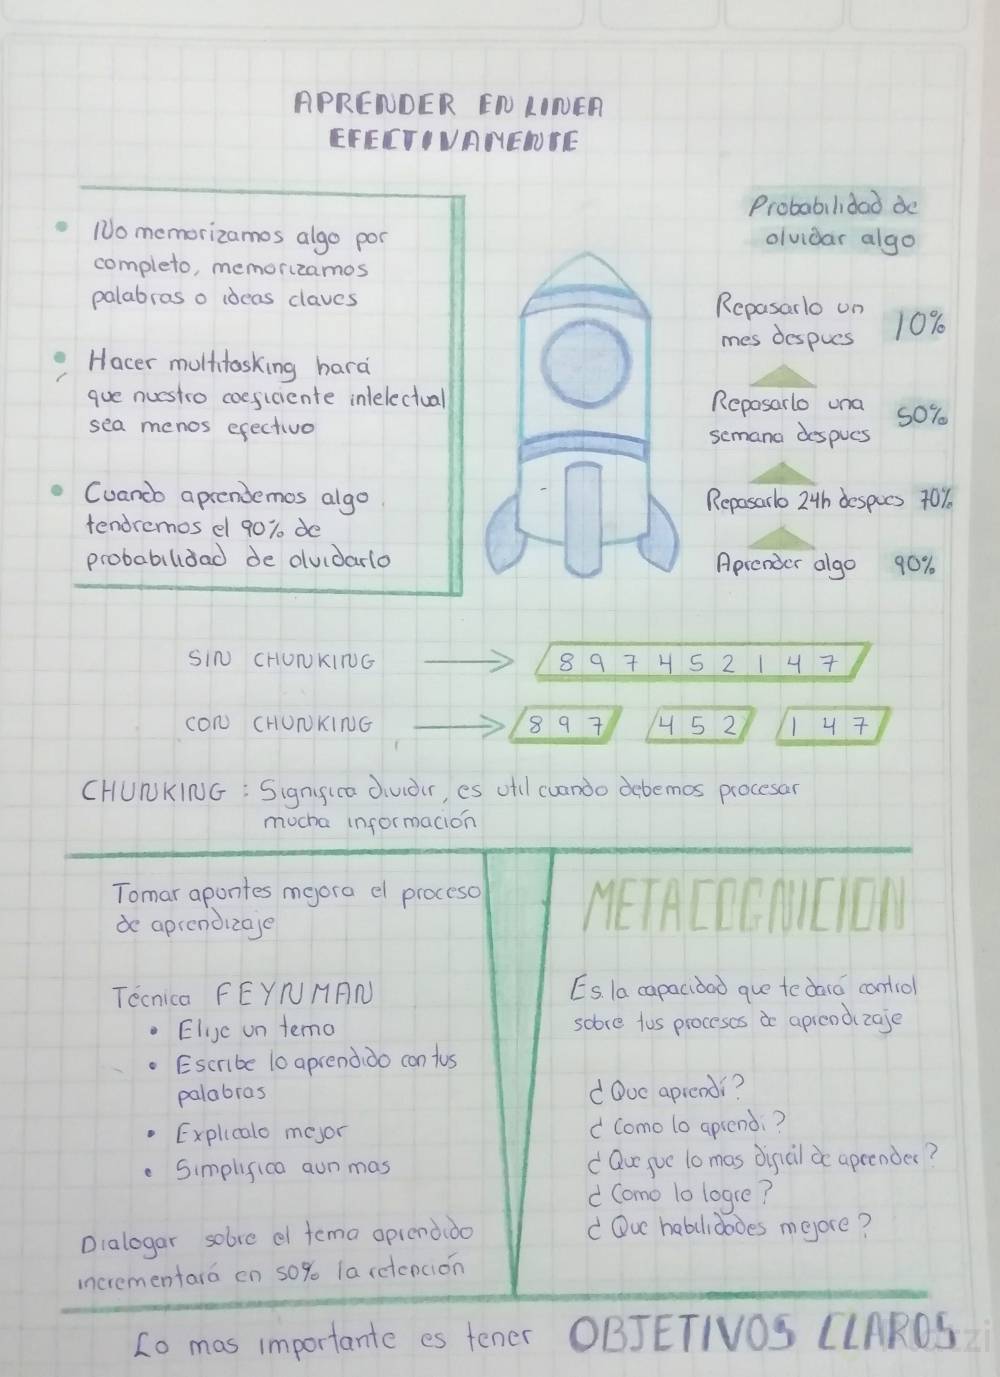 APRENDER EN LINEA
EFECTIVAMENTE
No memorizamos algo por
completo, memorizamos
palabras o ideas claves
Hacer multitasking hará
que nuestro coeficiente intelectual
sea menos efectivo
Cuando aprendemos algo
tendremos el 90% de
probabilidad de olvidarlo
Probabilidad de
olvidar algo
Repasarlo un
mes despues 10%
Repasarlo una
semana despues 50%
Repasarlo 24h despues 70%
Aprender algo 90%
SIN CHUNKING 8 9 7 4 5 2 1 4 7
CON CHUNKING 8 9 7 4 5 2 1 4 7
CHUNKING : Significa dividir, es util cuando debemos procesar
mucha información
Tomar apuntes mejora el proceso
de aprendizaje
Técnica FEYNMAN
• Elije un tema
• Escribe lo aprendido con tus
palabras
• Explicalo mejor
• Simplifica aun mas
Dialogar sobre el tema aprendido
incrementará en 50% la retención
METACOGNICION
Es la capacidad que te dará control
sobre tus procesos de aprendizaje
¿Que aprendí?
¿Como lo aprendi?
¿Que fue lo mas dificil de aprender?
¿Como lo logre?
¿Que habilidades mejore?
Lo mas importante es tener OBJETIVOS CLAROS